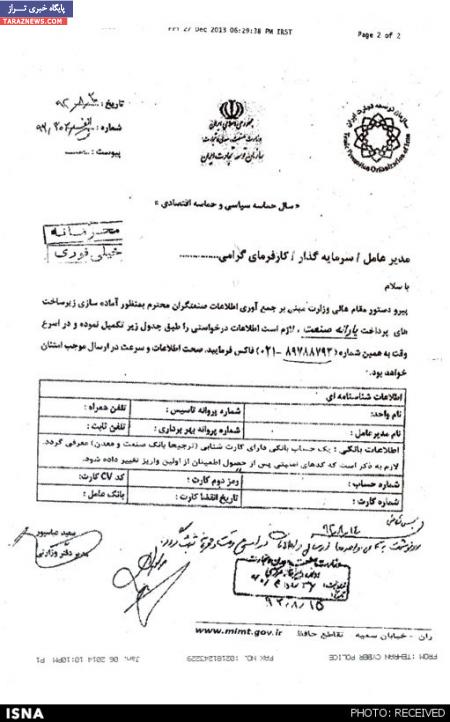 پایگاه خبری تراز
TARAZNEWS.COM
Fri 27 Dec 2013 06:29:38 PM IRST
Page 2 of 2
تاریخ :
شماره :
پیوست :
جمهوری اسلامی ایران
وزارت صنعت، معدن و تجارت
سازمان توسعه تجارت ایران
سازمان توسعه تجارت ایران
Trade Promotion Organization of Iran
« سال حماسه سیاسی و حماسه اقتصادی »
محرمانه
خیلی فوری
مدیر عامل / سرمایه گذار / کارفرمای گرامی..............
با سلام
پیرو دستور مقام عالی وزارت مبنی بر جمع آوری اطلاعات صنعتگران محترم بمنظور آماده سازی زیرساخت
های پرداخت یارانه صنعت ، لازم است اطلاعات درخواستی را طبق جدول زیر تکمیل نموده و در اسرع
وقت به همین شماره (۸۹۷۸۸۷۹۲-۰۲۱) فاکس فرمایید. صحت اطلاعات و سرعت در ارسال موجب امتنان
خواهد بود.
اطلاعات شناسنامه ای
نام واحد: شماره پروانه تاسیس : تلفن همراه :
نام مدیرعامل : شماره پروانه بهره برداری : تلفن ثابت :
اطلاعات بانکی : یک حساب بانکی دارای کارت شتابی (ترجیها بانک صنعت و معدن) معرفی گردد.
لازم به ذکر است که کدهای امنیتی پس از حصول اطمینان از اولین واریز تغییر داده شود.
شماره حساب : رمز دوم کارت : کد CV کارت:
شماره کارت : تاریخ انقضا کارت : بانک عامل :
سعید عباسپور
مدیر دفتر وزارتی
۹۲/۸/۱۵
ران - خیابان سمیه تقاطع حافظ www.mimt.gov.ir
FROM :TEHRAN CYBER POLICE FAX NO. :02181243229 Jan. 06 2014 10:10PM P1
ISNA
PHOTO: RECEIVED